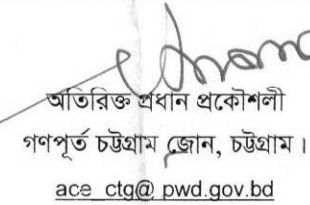 অতিরিক্ত প্রধান প্রকৌশলী
গণপূর্ত চট্টগ্রাম জোন, চট্টগ্রাম।
ace_ctg@ pwd.gov.bd